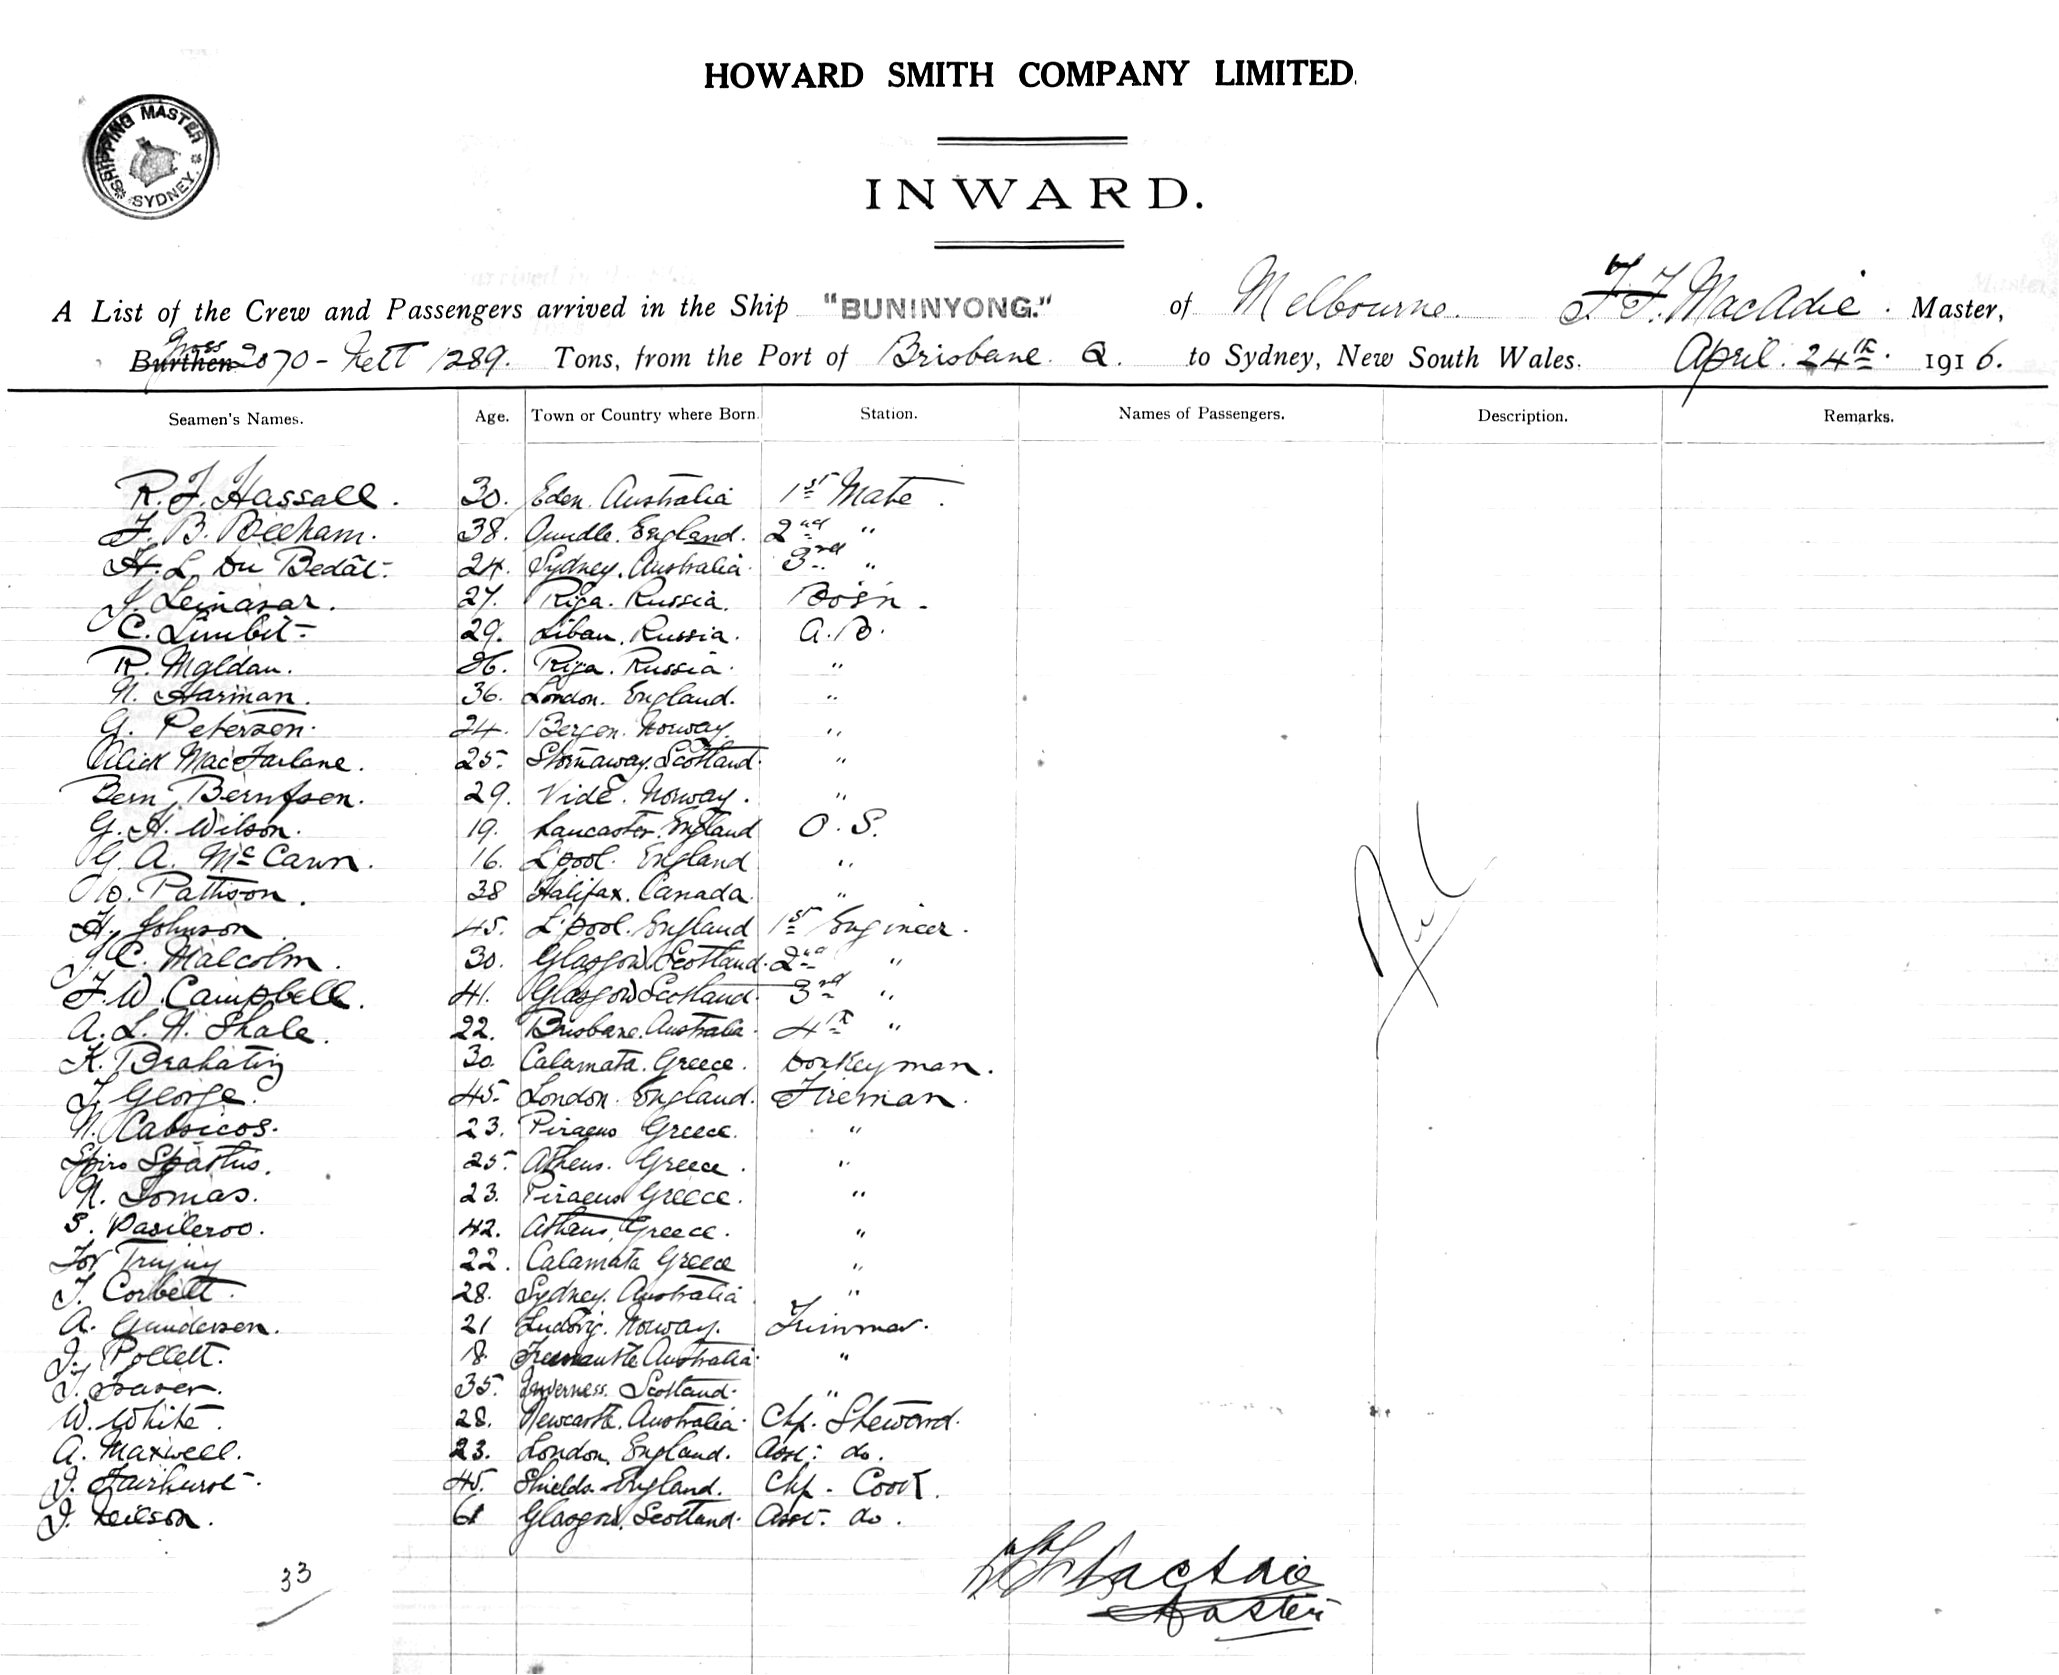 HOWARD SMITH COMPANY LIMITED.
SHIPPING MASTER SYDNEY.
INWARD.
A List of the Crew and Passengers arrived in the Ship "BUNINYONG." of Melbourne. F. F. MacAdie. Master,
Burthen Gross 2070 - Nett 1289. Tons, from the Port of Brisbane. Q. to Sydney, New South Wales. April. 24th. 1916.
Seamen's Names. Age. Town or Country where Born. Station. Names of Passengers. Description. Remarks.
R. J. Hassall. 30. Eden. Australia 1st Mate.
F. B. Beeham. 38. Oundle. England. 2nd "
H. L. Du Bedât. 24. Sydney. Australia. 3rd "
J. Leinasar. 27. Riga. Russia. Bos'n.
C. Limbit. 29. Liban. Russia. A.B.
R. Mgldau. 26. Riga. Russia. "
N. Harman. 36. London. England. "
G. Petersen. 24. Bergen. Norway. "
Alick MacFarlane. 25. Stornaway. Scotland. "
Bern Berntsen. 29. Vide. Norway. "
G. H. Wilson. 19. Lancaster. England O. S.
G. A. McCawn. 16. L'pool. England "
Pattison. 38 Halifax. Canada. "
H. Johnson 45. L'pool. England 1st Engineer.
J. C. Malcolm. 30. Glasgow Scotland. 2nd "
F. W. Campbell. 41. Glasgow Scotland. 3rd "
A. L. H. Shale. 22. Brisbane. Australia. 4th "
K. 30. Calamata. Greece. Donkeyman.
J. George. 45. London. England. Fireman.
N. Cabsicos. 23. Piraeus Greece. "
Spiro Spastus. 25. Athens. Greece. "
N. Tomas. 23. Piraeus Greece. "
S. Vasileroo. 42. Athens, Greece. "
22. Calamata Greece "
J. Corbett. 28. Sydney. Australia "
A. Gundersen. 21 Ludvig. Norway. Trimmer.
J. Pollett. 18. Freemantle Australia. "
J. Fraser. 35. Inverness. Scotland. "
W. White. 28. Newcastle. Australia. Chf. Steward.
A. Maxwell. 23. London. England. Asst: do.
J. Fairhurst. 45. Shields. England. Chf. Cook.
J. Neilson. 61 Glasgow. Scotland. Asst. do.
33
F. F. MacAdie
Master